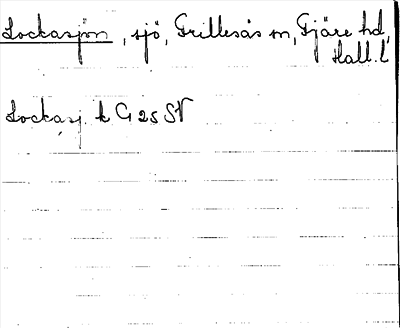 Lockasjön, sjö, Grillesås sn, Fjäre hd,
Hall. l
Lockasj. k G 25 SV